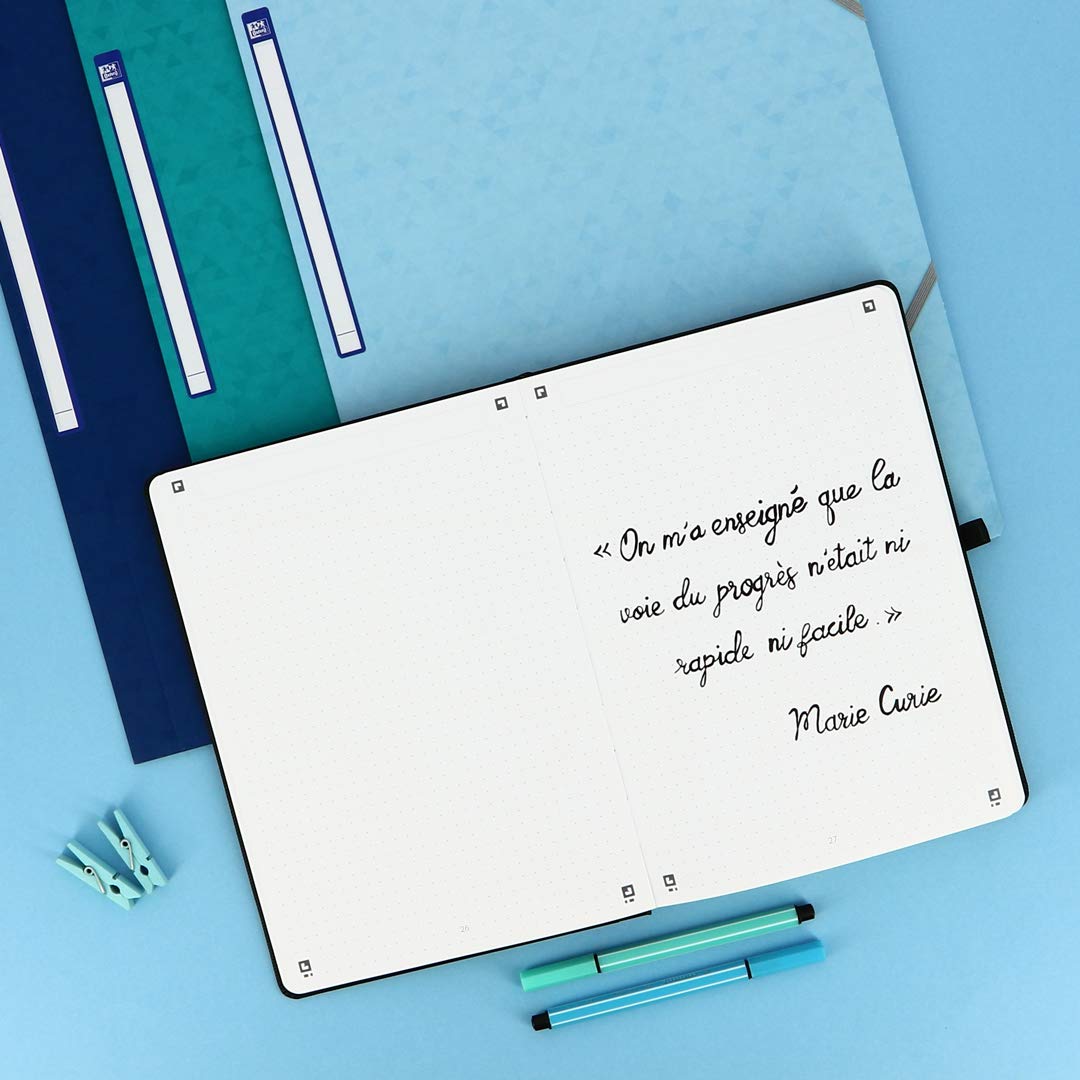 « On m'a enseigné que la
voie du progrès n'était ni
rapide ni facile. »
Marie Curie
26
27